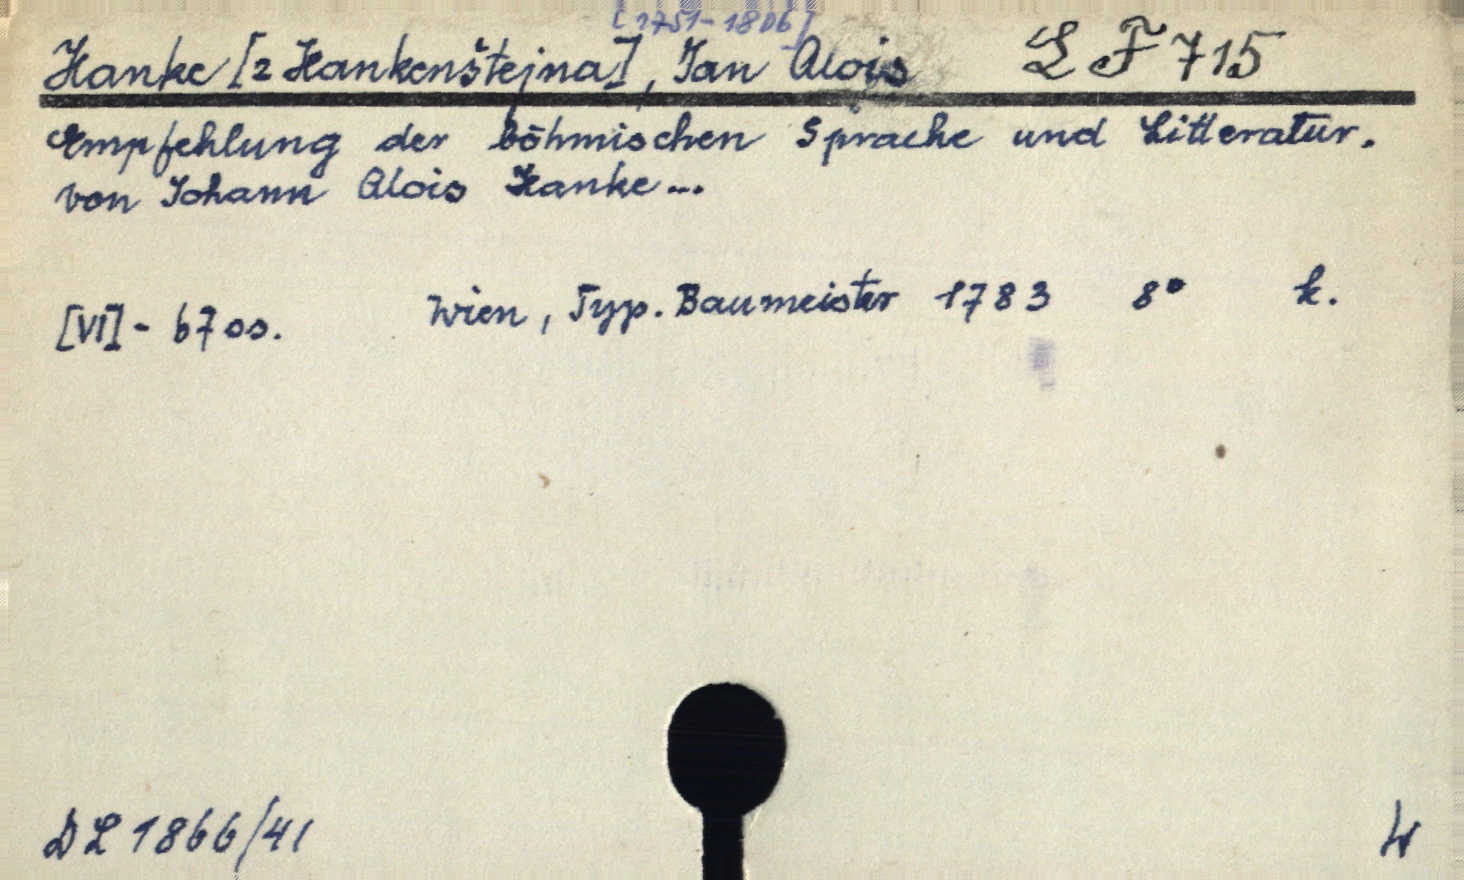 [1751-1806]
Hanke [z Hankenštejna], Jan Alois LF 715
Empfehlung der böhmischen Sprache und Litteratur.
von Johann Alois Hanke...
Wien, Typ. Baumeister 1783 8° k.
[VI] - 67 ss.
DL 1866/41